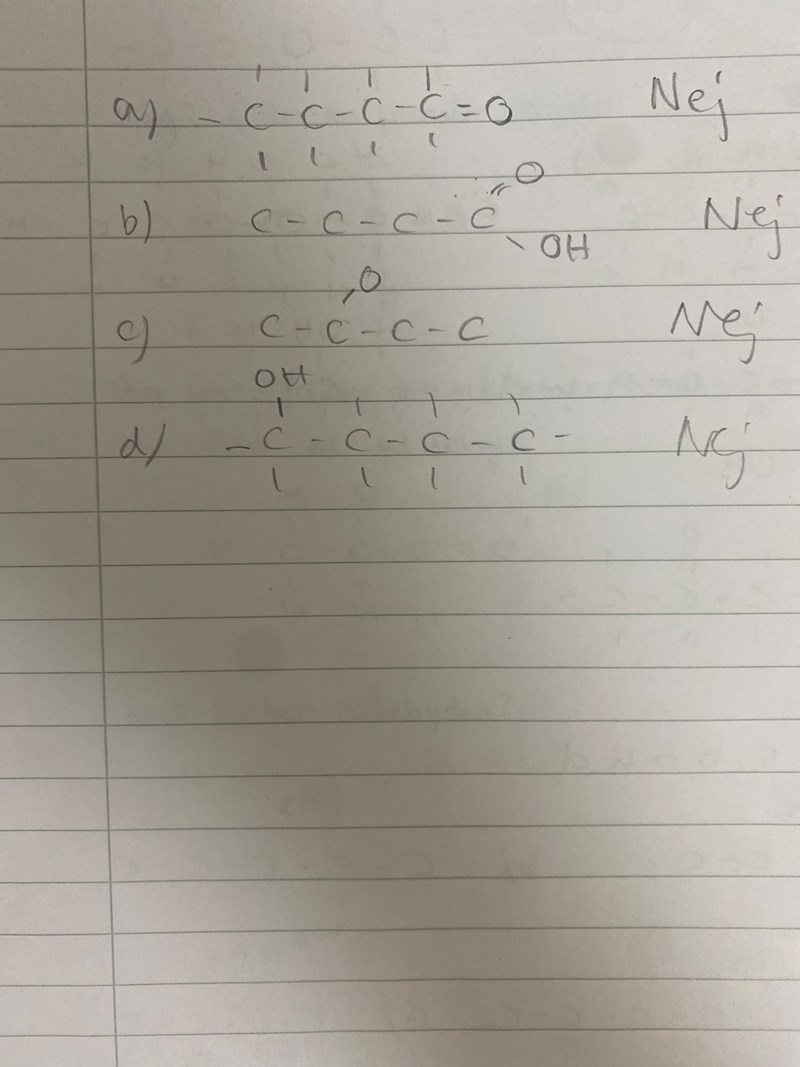 a) - C - C - C - C = O Nej
O
b) C - C - C - C Nej
OH
O
c) C - C - C - C Nej
OH
d) - C - C - C - C - Nej